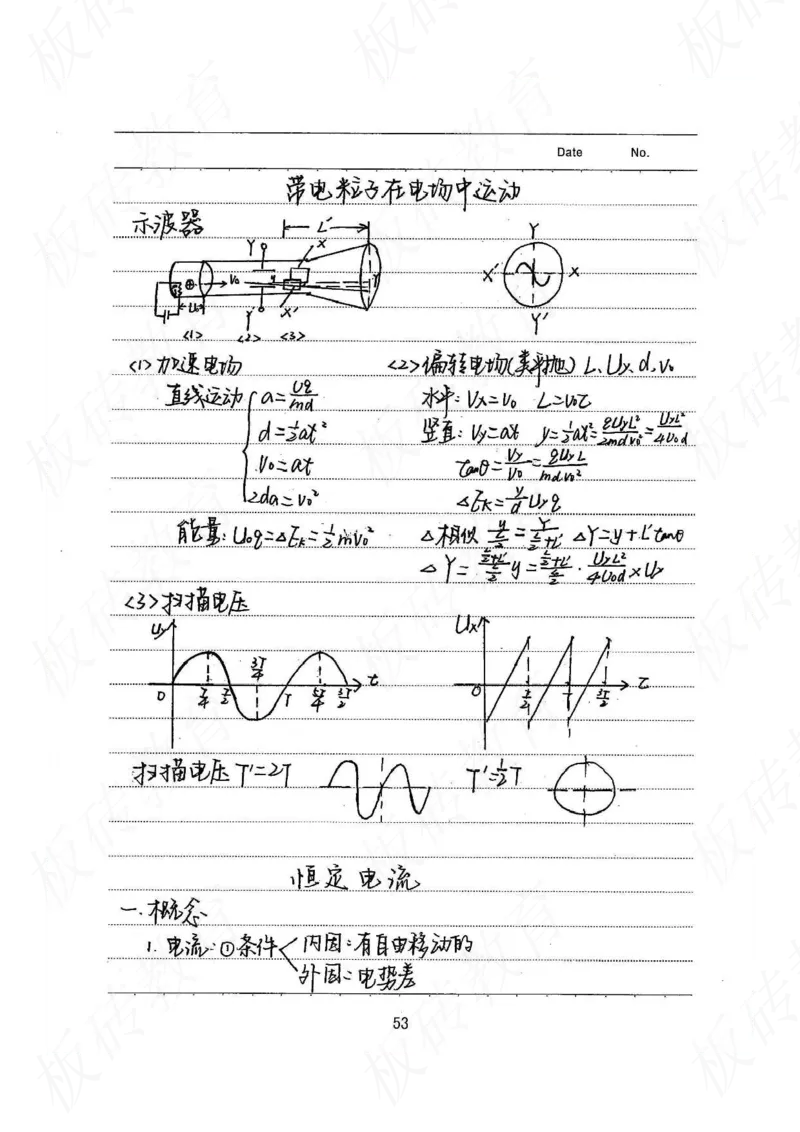 Date No.
带电粒子在电场中运动
示波器
L'
Y X
⊕ V₀ y Y
U₀ Y' X'
<1> <2> <3>
Y
X' X
Y'
<1> 加速电场
直线运动 { a=Uq/md
d=½at²
V₀=at
2da=V₀²
能量: U₀q=△Eₖ=½mV₀²
<2> 偏转电场(类平抛) L、Uy、d、V₀
水平: Vx=V₀ L=V₀t
竖直: Vy=at y=½at²=qUyL²/2mdV₀²=UyL²/4U₀d
tanθ=Vy/V₀=qUyL/mdV₀²
△Eₖ=y/d Uyq
△相似 y/(L/2)=Y/(L/2+L') △Y=y+L'tanθ
△ Y=(L/2+L')/(L/2) y=(L/2+L')/(L/2)·UyL²/4U₀d ×Uy
<3> 扫描电压
Uy
0 T/4 T/2 3T/4 T 5T/4 3T/2 t
Ux
0 T/2 T 3T/2 t
扫描电压 T'=2T T'=½T
恒定电流
一.概念
1. 电流: ①条件 内因: 有自由移动的
外因: 电势差
53
板砖教育